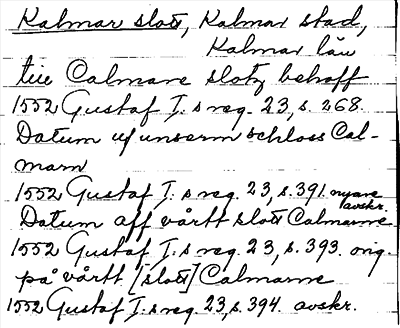 Kalmar slott, Kalmar stad,
Kalmar län
till Calmare slotz behoff
1552 Gustaf I:s reg. 23, s. 268.
Datum uf unserm schloss Cal-
marn
1552 Gustaf I:s reg. 23, s. 391. nyare
avskr.
Datum aff vårtt slott Calmarne
1552 Gustaf I:s reg. 23, s. 393. orig.
på vårtt [slott] Calmarne
1552 Gustaf I:s reg. 23, s. 394. avskr.